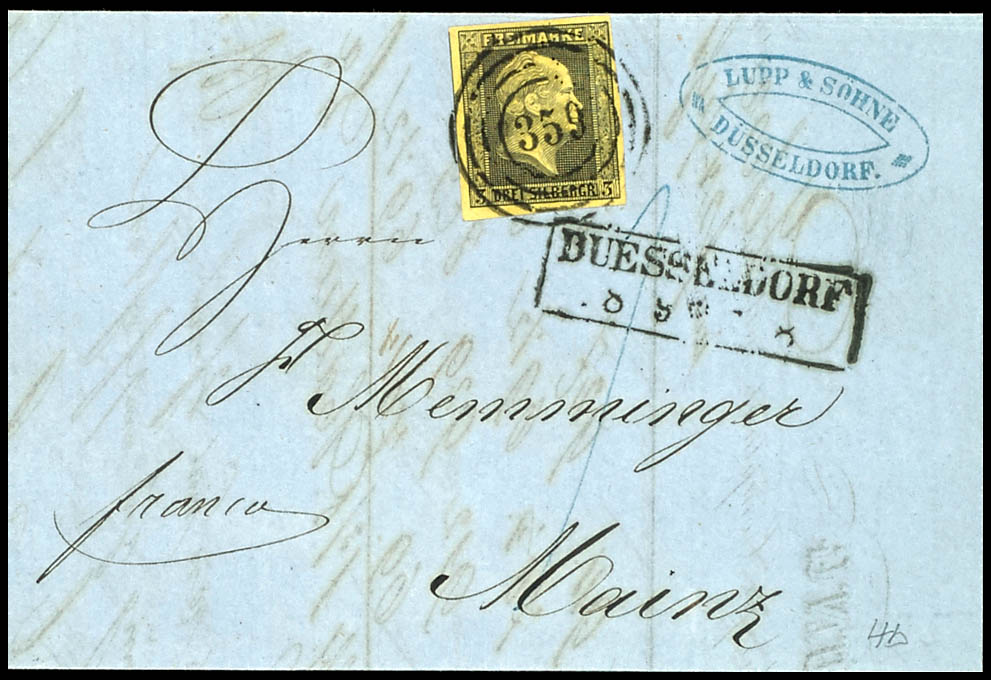 FREIMARKE
359
3 DREI SILBERGR. 3
LUPP & SÖHNE
DÜSSELDORF.
DUESSELDORF
8 5
Herrn
Memminger
franco
Mainz
4b